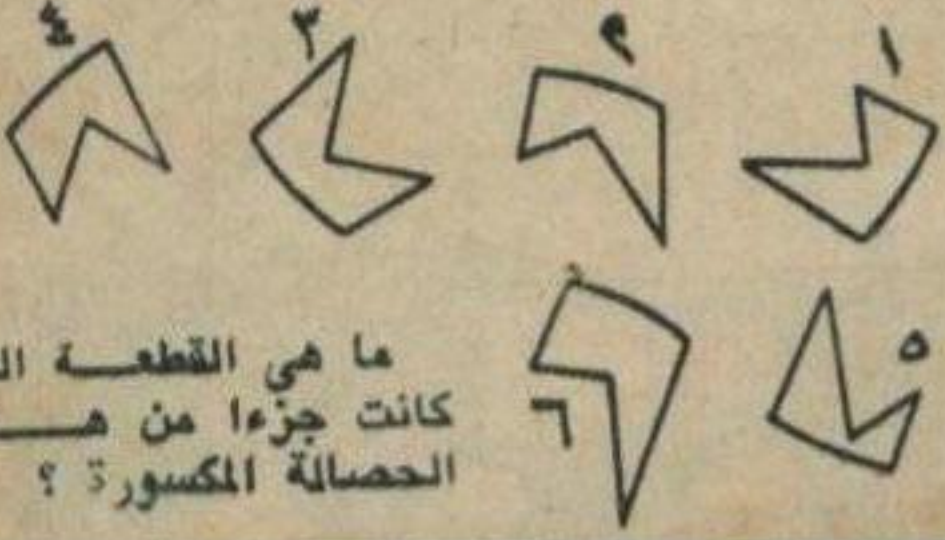 ١
٢
٣
٤
٥
٦
ما هي القطعـــة
كانت جزءا من هـــ
الحصالة المكسورة ؟